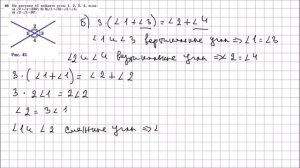 На рисунке 41 найдите углы 1, 2, 3, 4, если:
Рис. 41
б) 3·(∠1+∠3)=∠2+∠4
∠1 и ∠3 вертикальные углы ⇒∠1=∠3
∠2 и ∠4 вертикальные углы ⇒∠2=∠4
3·(∠1+∠1)=∠2+∠2
3·2∠1=2∠2
∠2=3∠1
∠1 и ∠2 смежные углы ⇒∠